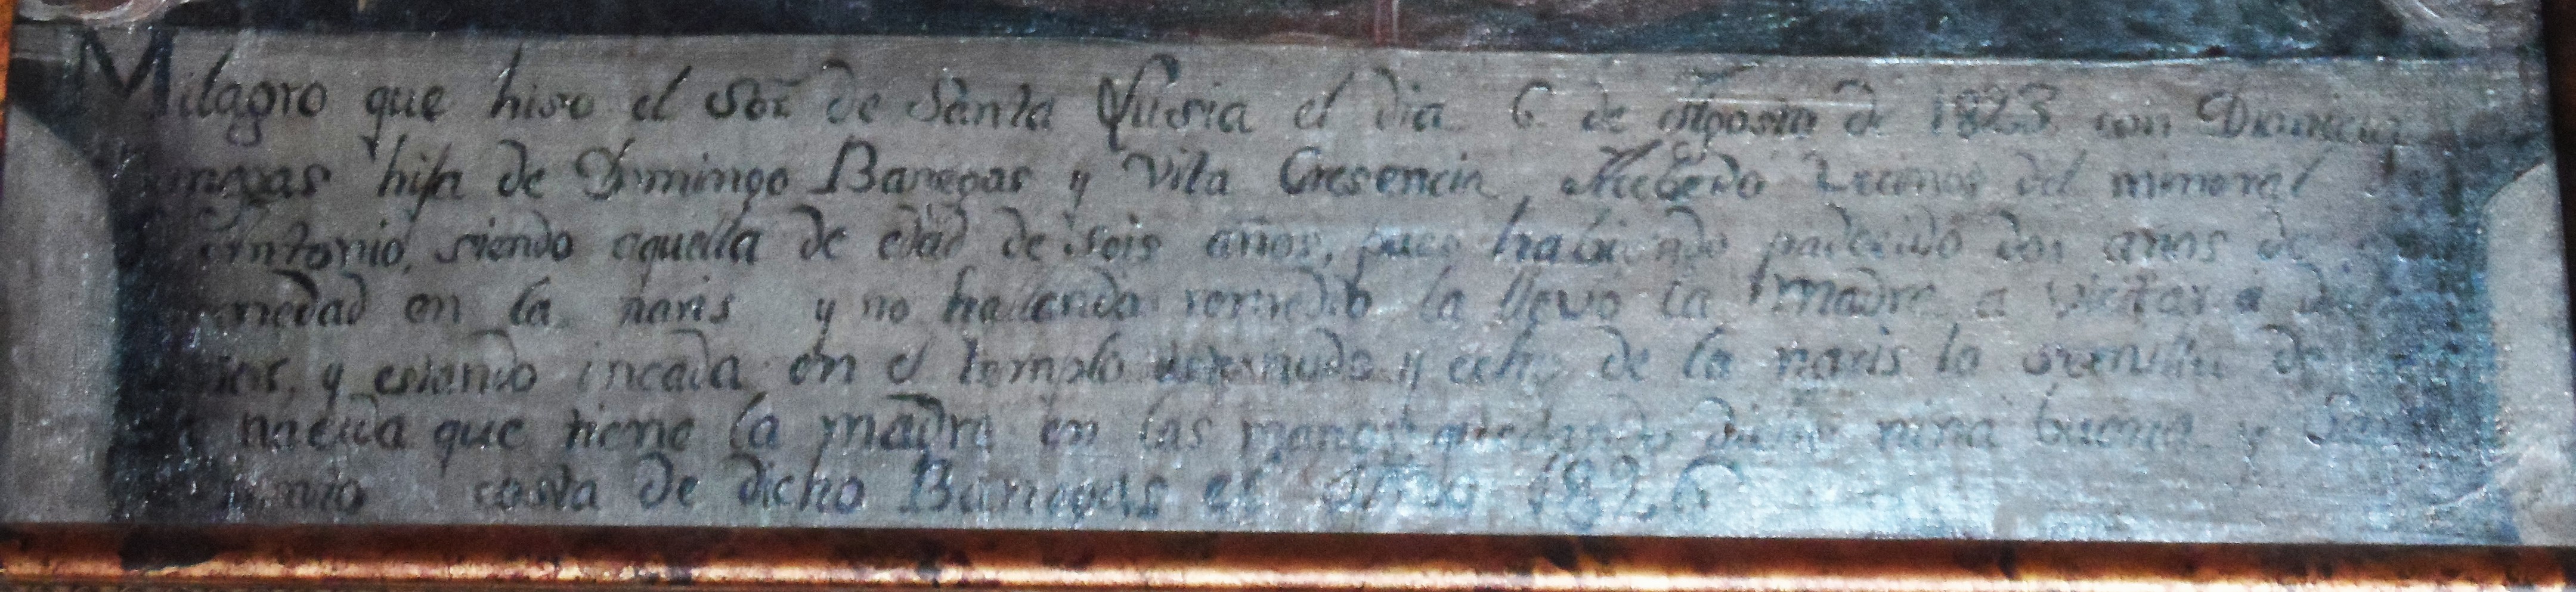 Milagro que hiso el Sor. de Santa Lusia el dia 6 de Agosto de 1823 con Dionicia
hija de Domingo Banegas y Vita Cresencia Acebedo Vecinos del mineral de
Antonio, siendo aquella de edad de seis años, pues habiendo padecido dos años de
en la naris y no hallando remedio la llevo la madre a visitar a
y estando incada en el templo estornudo y echo de la naris la semilla de
nacida que tiene la madre en las manos quedando dicha niña buena y
costa de dicho Banegas el año 1826